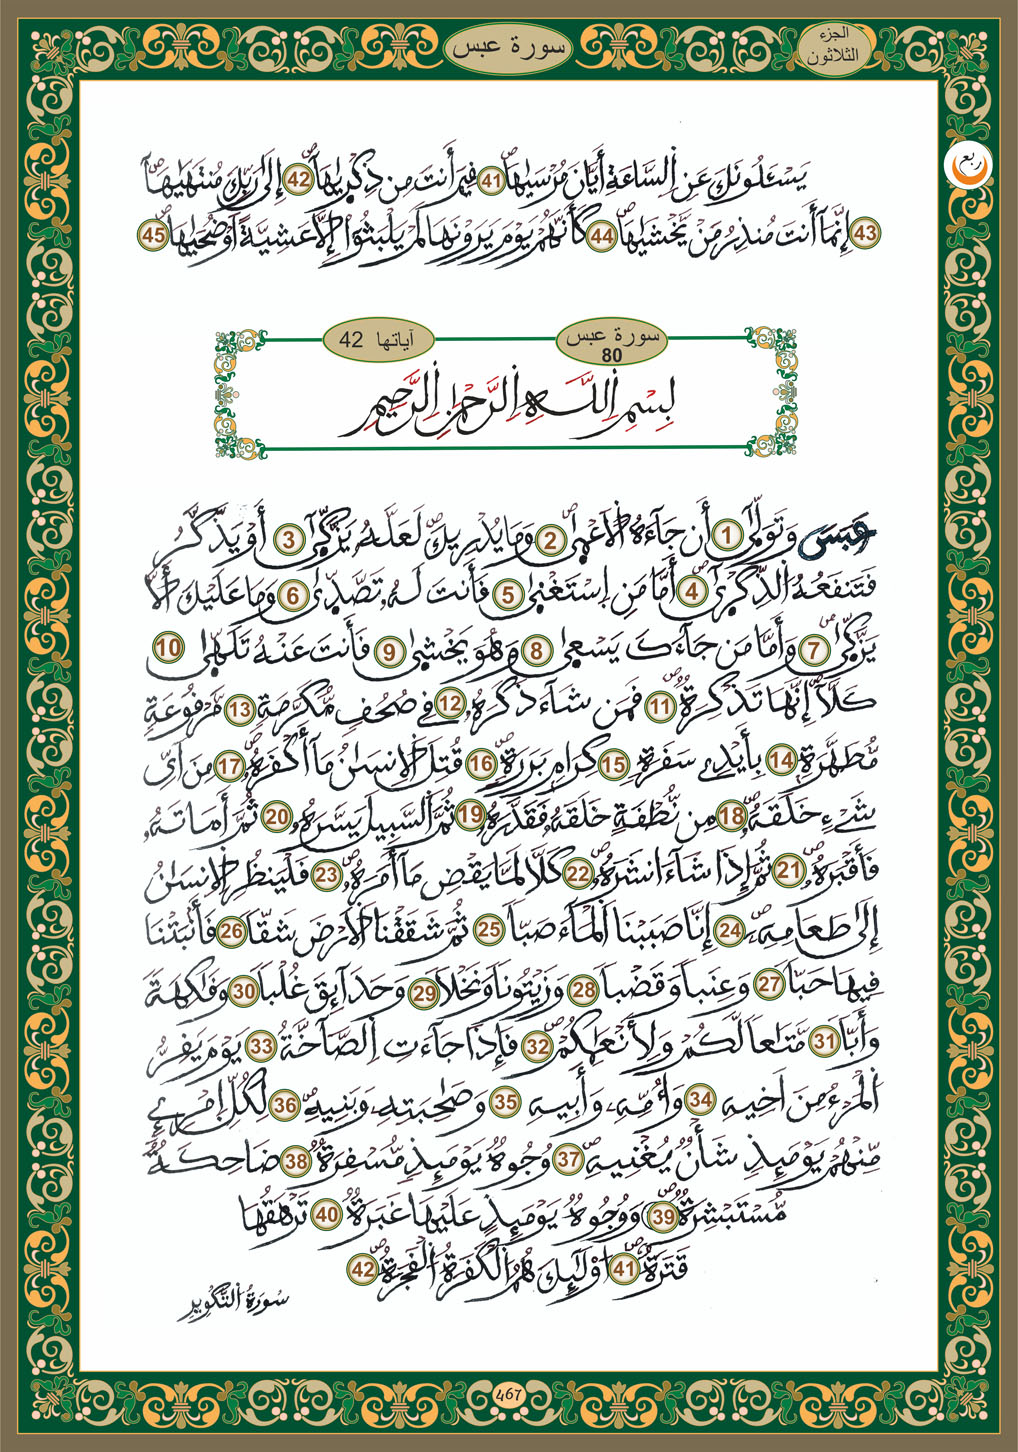 سورة عبس
الجزء
الثلاثون
ربع
يَسْـَٔلُونَكَ عَنِ اِ۬لسَّاعَةِ أَيَّانَ مُرْس۪يٰهَا 41 فِيمَ أَنتَ مِن ذِكْر۪يٰهَا 42 إِلَىٰ رَبِّكَ مُنتَه۪يٰهَا
43 إِنَّمَا أَنتَ مُنذِرُ مَنْ يَّخْش۪يٰهَا 44 كَأَنَّهُمْ يَوْمَ يَرَوْنَهَا لَمْ يَلْبَثُوٓاْ إِلَّا عَشِيَّةً اَوْ ضُح۪يٰهَا 45
سورة عبس
80
آياتها 42
بِسْمِ اِ۬للَّهِ اِ۬لرَّحْمَٰنِ اِ۬لرَّحِيمِ
عَبَسَ وَتَوَلّ۪يٰٓ 1 أَن جَآءَهُ اُ۬لَاعْم۪يٰ 2 وَمَا يُدْرِيكَ لَعَلَّهُۥ يَزَّكّ۪يٰٓ 3 أَوْ يَذَّكَّرُ
فَتَنفَعُهُ اُ۬لذِّكْر۪يٰٓ 4 أَمَّا مَنِ اِ۪سْتَغْن۪يٰ 5 فَأَنتَ لَهُۥ تَصَّدّ۪يٰ 6 وَمَا عَلَيْكَ أَلَّا
يَزَّكّ۪يٰ 7 وَأَمَّا مَن جَآءَكَ يَسْع۪يٰ 8 وَهُوَ يَخْش۪يٰ 9 فَأَنتَ عَنْهُ تَلَهّ۪يٰ 10
كَلَّآ إِنَّهَا تَذْكِرَةٌ 11 فَمَن شَآءَ ذَكَرَهُۥ 12 فِي صُحُفٍ مُّكَرَّمَةٍ 13 مَّرْفُوعَةٍ
مُّطَهَّرَةٍۢ 14 بِأَيْدِي سَفَرَةٍ 15 كِرَامٍۢ بَرَرَةٍ 16 قُتِلَ اَ۬لِانسَٰنُ مَآ أَكْفَرَهُۥ 17 مِنَ اَيِّ
شَےْءٍ خَلَقَهُۥ 18 مِن نُّطْفَةٍ خَلَقَهُۥ فَقَدَّرَهُۥ 19 ثُمَّ اَ۬لسَّبِيلَ يَسَّرَهُۥ 20 ثُمَّ أَمَاتَهُۥ
فَأَقْبَرَهُۥ 21 ثُمَّ إِذَا شَآءَ انشَرَهُۥ 22 كَلَّا لَمَّا يَقْضِ مَآ أَمَرَهُۥ 23 فَلْيَنظُرِ اِ۬لِانسَٰنُ
إِلَىٰ طَعَامِهِۦٓ 24 إِنَّا صَبَبْنَا اَ۬لْمَآءَ صَبّاً 25 ثُمَّ شَقَقْنَا اَ۬لَارْضَ شَقّاً 26 فَأَنۢبَتْنَا
فِيهَا حَبّاً 27 وَعِنَباً وَقَضْباً 28 وَزَيْتُوناً وَنَخْلاً 29 وَحَدَآئِقَ غُلْباً 30 وَفَٰكِهَةً
وَأَبّاً 31 مَّتَٰعاً لَّكُمْ وَلِأَنْعَٰمِكُمْ 32 فَإِذَا جَآءَتِ اِ۬لصَّآخَّةُ 33 يَوْمَ يَفِرُّ
اُ۬لْمَرْءُ مِنَ اَخِيهِ 34 وَأُمِّهِۦ وَأَبِيهِ 35 وَصَٰحِبَتِهِۦ وَبَنِيهِ 36 لِكُلِّ اِ۪مْرِےٕٖ
مِّنْهُمْ يَوْمَئِذٍ شَأْنٌ يُغْنِيهِ 37 وُجُوهٌ يَوْمَئِذٍ مُّسْفِرَةٌ 38 ضَاحِكَةٌ
مُّسْتَبْشِرَةٌ 39 وَوُجُوهٌ يَوْمَئِذٍ عَلَيْهَا غَبَرَةٌ 40 تَرْهَقُهَا
قَتَرَةٌ 41 اُوْلَٰٓئِكَ هُمُ اُ۬لْكَفَرَةُ اُ۬لْفَجَرَةُ 42
سُورَةُ اُ۬لتَّكْوِيرِ
467